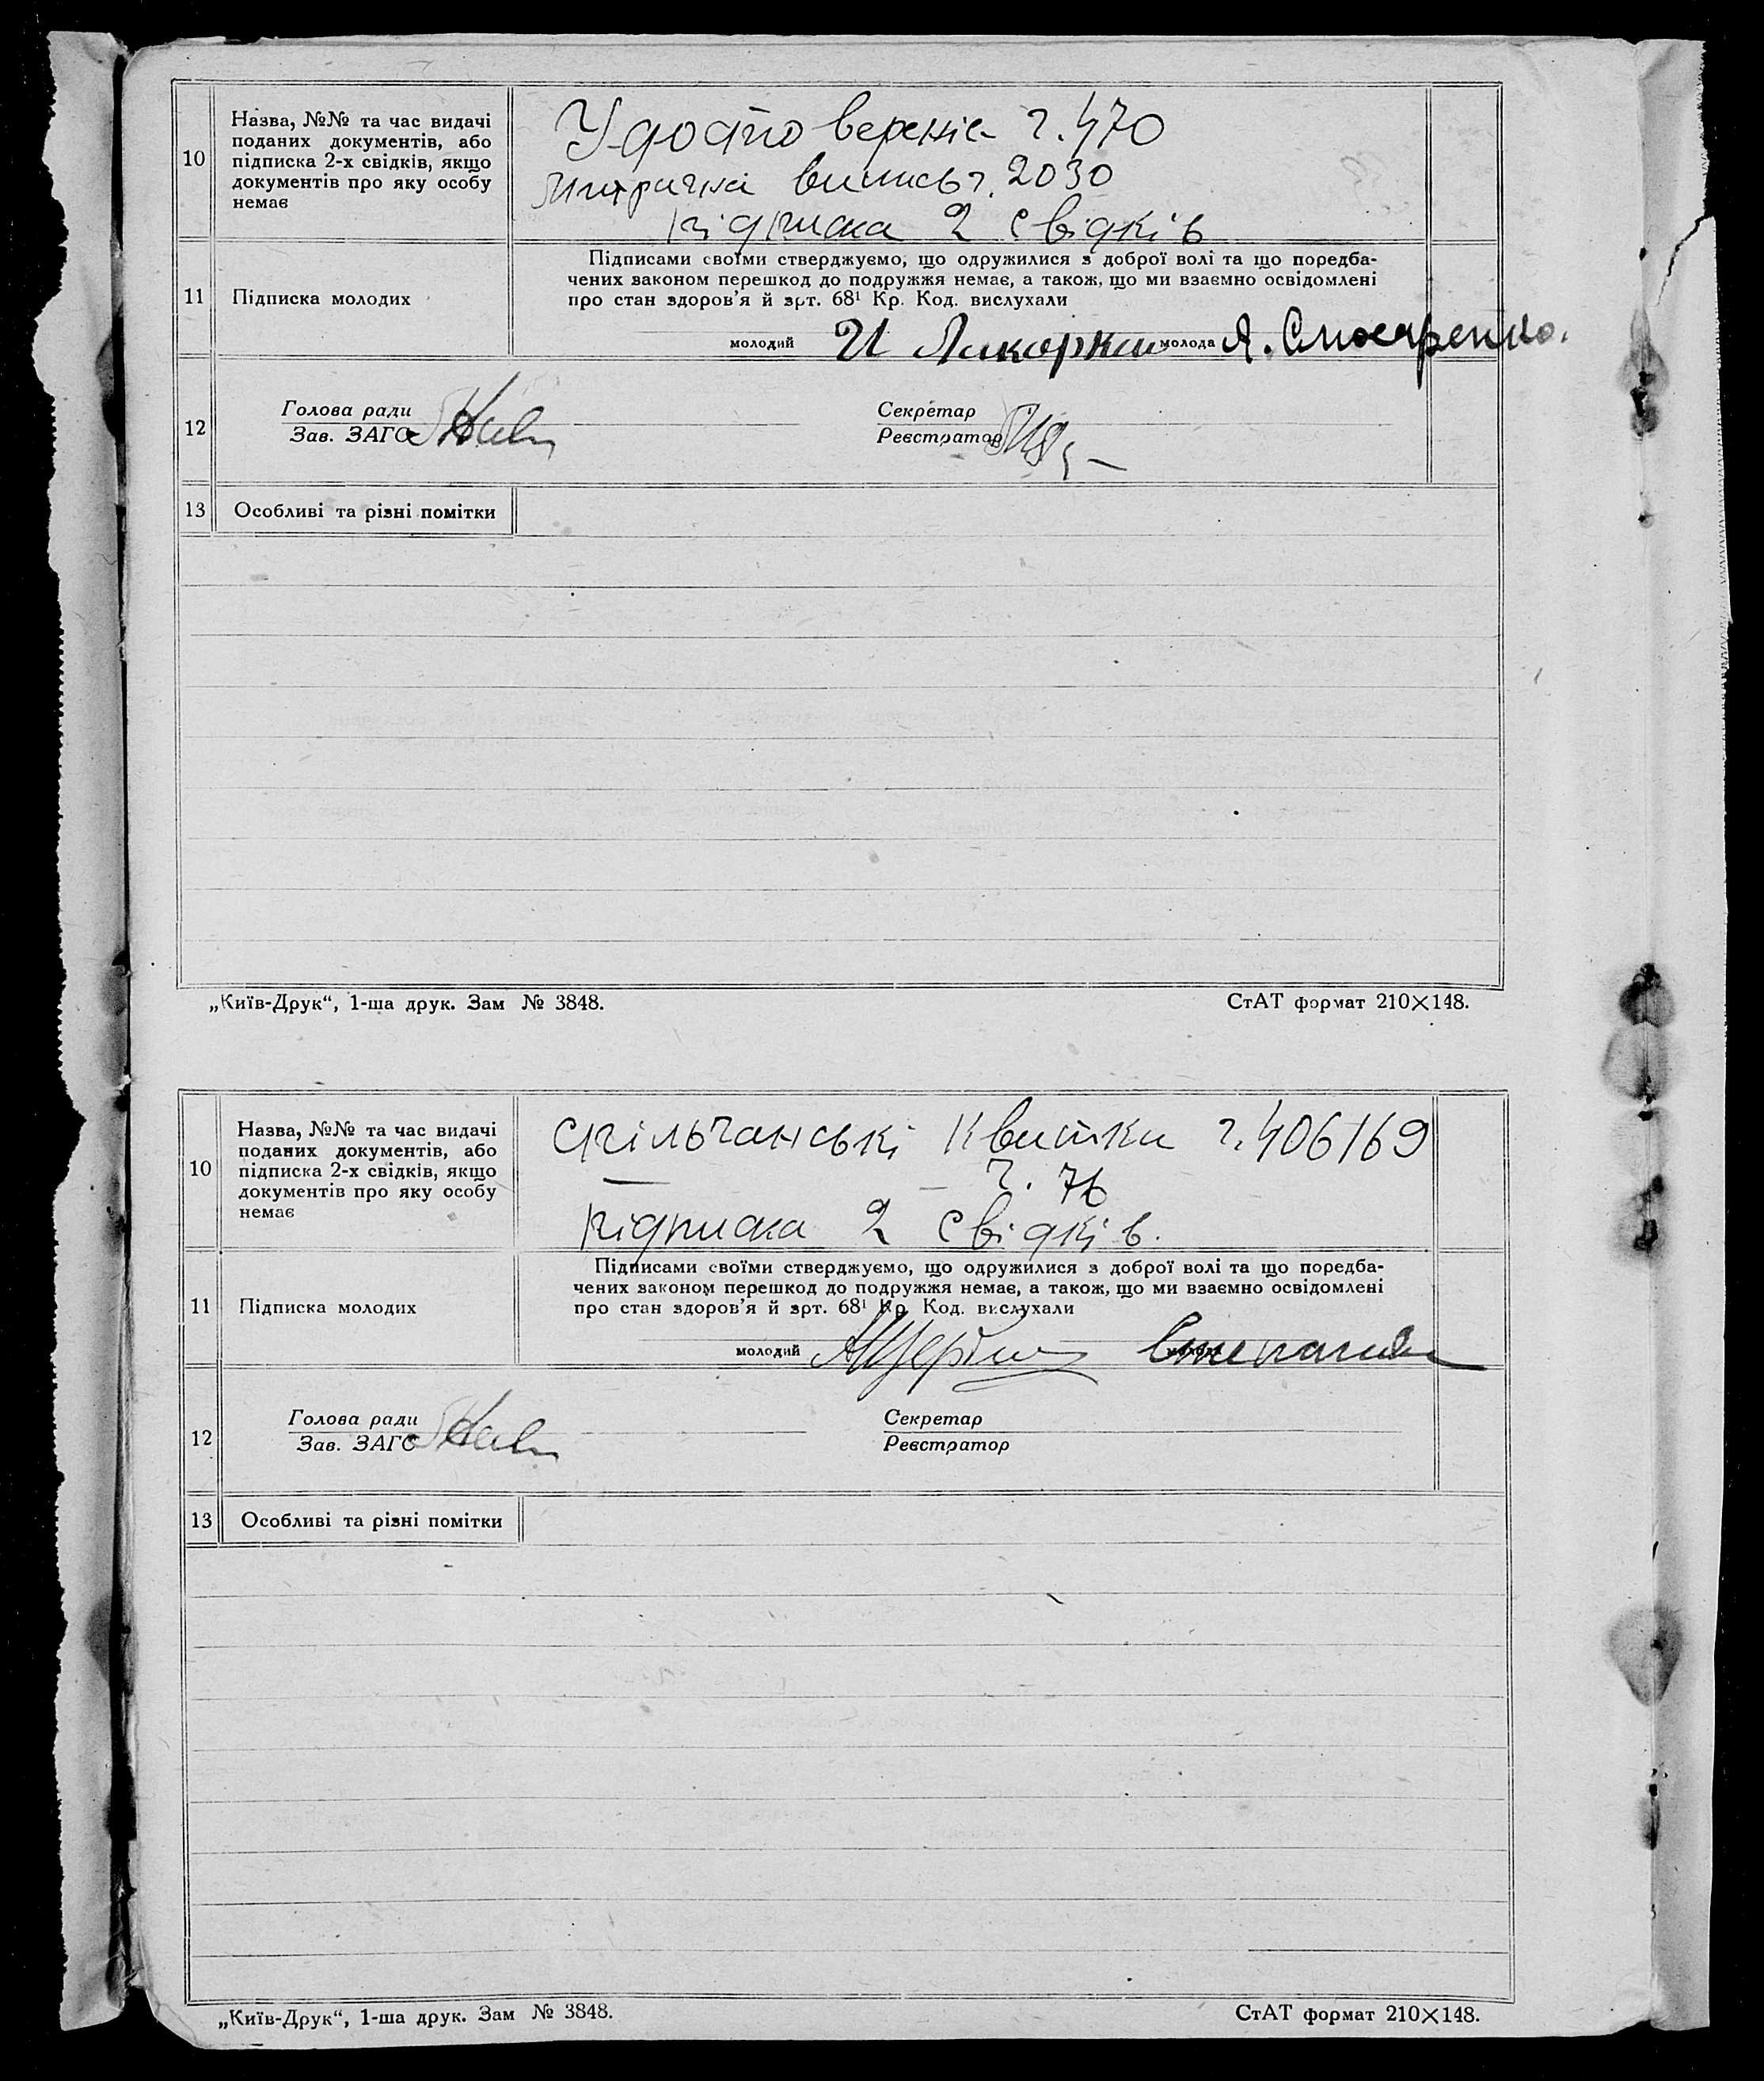 10
Назва, №№ та час видачі
поданих документів, або
підписка 2-х свідків, якщо
документів про яку особу
немає
Удостовереніє ч. 470
метрична виписьч. 2030
підписка 2 свідків
11
Підписка молодих
Підписами своїми стверджуємо, що одружилися з доброї волі та що поредба-
чених законом перешкод до подружжя немає, а також, що ми взаємно освідомлені
про стан здоров'я й арт. 68¹ Кр. Код. вислухали
молодий И молода Я.
12
Голова ради
Зав. ЗАГС
Секретар
Реєстратор
13
Особливі та різні помітки
„Київ-Друк“, 1-ша друк. Зам № 3848.
СтАТ формат 210×148.
10
Назва, №№ та час видачі
поданих документів, або
підписка 2-х свідків, якщо
документів про яку особу
немає
спільчанські квитки ч. 406169
— – ч. 76
підписка 2 свідків.
11
Підписка молодих
Підписами своїми стверджуємо, що одружилися з доброї волі та що поредба-
чених законом перешкод до подружжя немає, а також, що ми взаємно освідомлені
про стан здоров'я й арт. 68¹ Кр. Код. вислухали
молодий
12
Голова ради
Зав. ЗАГС
Секретар
Реєстратор
13
Особливі та різні помітки
„Київ-Друк“, 1-ша друк. Зам № 3848.
СтАТ формат 210×148.